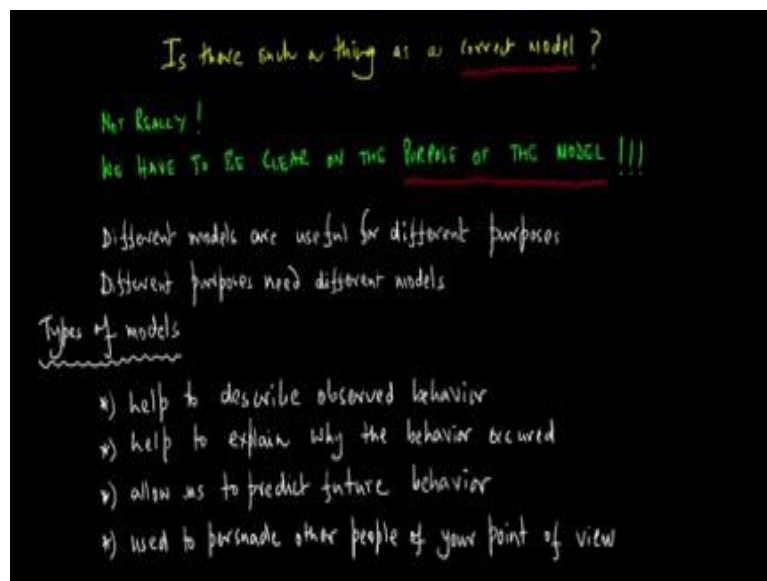 Is there such a thing as a correct model ?
NOT REALLY !
WE HAVE TO BE CLEAR ON THE PURPOSE OF THE MODEL !!!
Different models are useful for different purposes
Different purposes need different models
Types of models
*) help to describe observed behavior
*) help to explain why the behavior occured
*) allow us to predict future behavior
*) used to persuade other people of your point of view